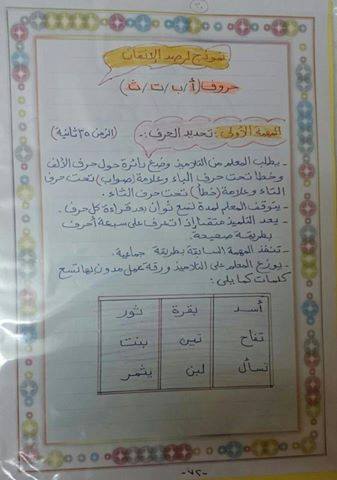 نموذج لرصد الإتقان
حروف (أ/ب/ت/ث)
المهمة الأولى: تحديد الحرف: (الزمن ٣٥ ثانية)
- يطلب المعلم من التلاميذ وضع دائرة حول حرف الألف
وخطا تحت حرف الباء وعلامة (صواب) تحت حرف
التاء وعلامة (خطأ) تحت حرف الثاء.
- يتوقف المعلم لمدة تسع ثوان بعد قراءة كل حرف.
- يعد التلميذ متقنا إذا تعرف على سبعة أحرف
بطريقة صحيحة.
- تنفذ المهمة السابقة بطريقة جماعية.
- يوزع المعلم على التلاميذ ورقة عمل مدون بها تسع
كلمات كما يلي:
أسد بقرة ثور
تفاح تين بنت
تسأل لبن يثمر
-٧٢-